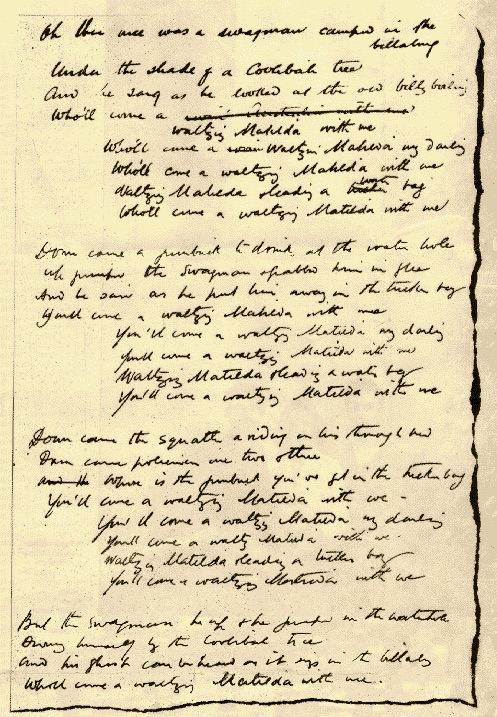 Oh there once was a swagman camped in the
billabong
Under the shade of a Coolibah tree
And he sang as he looked at the old billy boiling
Who'll come a waltzing Australia with me
waltzing Matilda with me
Who'll come a waltzing Matilda my darling
Who'll come a waltzing Matilda with me
Waltzing Matilda leading a water bag
Who'll come a waltzing Matilda with me
Down came a jumbuck to drink at the water hole
Up jumped the swagman grabbed him in glee
And he said as he put him away in the tucker bag
You'll come a waltzing Matilda with me
You'll come a waltzing Matilda my darling
You'll come a waltzing Matilda with me
Waltzing Matilda leading a water bag
You'll come a waltzing Matilda with me
Down came the squatter a riding on his thoroughbred
Down came policemen one two three
Where is the jumbuck you've got in the tucker bag
You'll come a waltzing Matilda with we -
You'll come a waltzing Matilda my darling
You'll come a waltzing Matilda with we
Waltzing Matilda leading a tucker bag
You'll come a waltzing Matilda with we
But the swagman he up & he jumped in the waterhole
Drowning himself by the Coolibah tree
And his ghost can be heard as it sings in the billabong
Who'll come a waltzing Matilda with me.